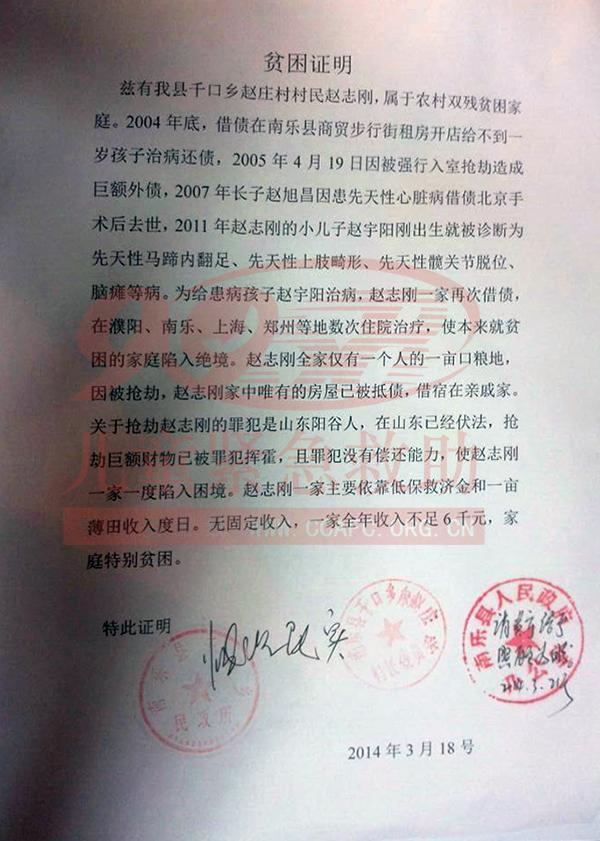 贫困证明
兹有我县千口乡赵庄村村民赵志刚，属于农村双残贫困家
庭。2004 年底，借债在南乐县商贸步行街租房开店给不到一
岁孩子治病还债，2005 年 4 月 19 日因被强行入室抢劫造成
巨额外债，2007 年长子赵旭昌因患先天性心脏病借债北京手
术后去世，2011 年赵志刚的小儿子赵宇阳刚出生就被诊断为
先天性马蹄内翻足、先天性上肢畸形、先天性髋关节脱位、
脑瘫等病。为给患病孩子赵宇阳治病，赵志刚一家再次借债，
在濮阳、南乐、上海、郑州等地数次住院治疗，使本来就贫
困的家庭陷入绝境。赵志刚全家仅有一个人的一亩口粮地，
因被抢劫，赵志刚家中唯有的房屋已被抵债，借宿在亲戚家。
关于抢劫赵志刚的罪犯是山东阳谷人，在山东已经伏法，抢
劫巨额财物已被罪犯挥霍，且罪犯没有偿还能力，使赵志刚
一家一度陷入困境。赵志刚一家主要依靠低保救济金和一亩
薄田收入度日。无固定收入，一家全年收入不足 6 千元，家
庭特别贫困。
特此证明
情况属实
南乐县人民政府
民政所
村民委员会
2014 年 3 月 18 号
儿童紧急救助
WWW.CCAFC.ORG.CN